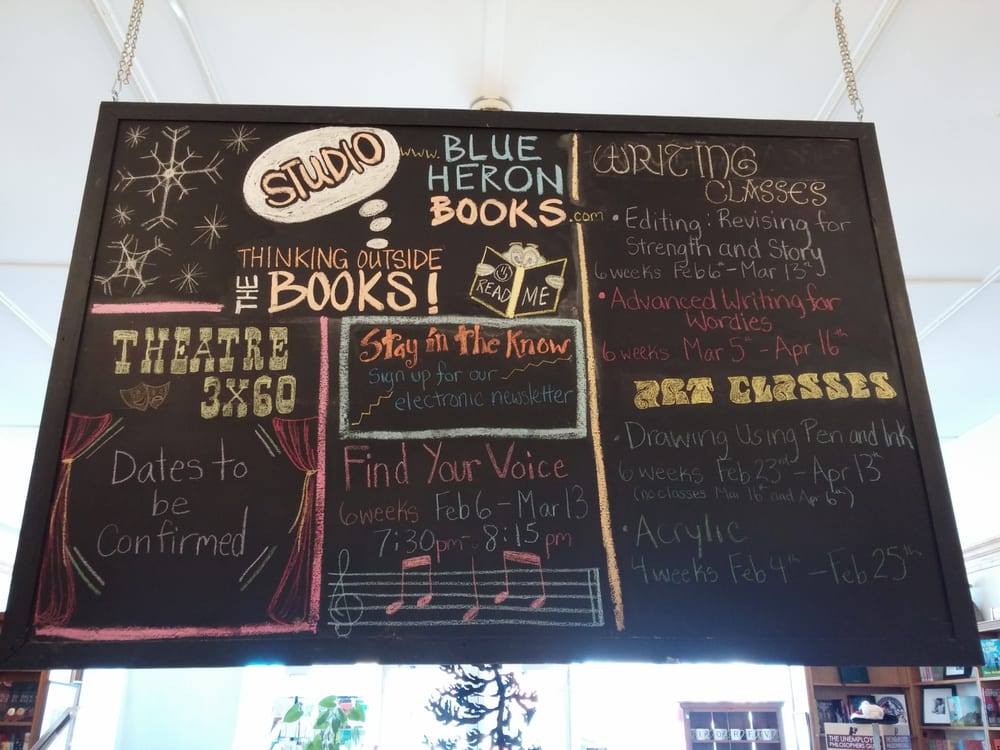 STUDIO
www.BLUE
HERON
BOOKS.com
THINKING OUTSIDE
THE BOOKS!
READ ME
THEATRE
3X60
Dates to
be
Confirmed
Stay in the Know
Sign up for our
electronic newsletter
Find Your Voice
6 weeks Feb 6 - Mar 13
7:30pm - 8:15 pm
WRITING
CLASSES
• Editing: Revising for
Strength and Story
6 weeks Feb 6th - Mar 13th
• Advanced Writing for
Wordies
6 weeks Mar 5th - Apr 16th
ART CLASSES
• Drawing Using Pen and Ink
6 weeks Feb 23rd - Apr 13th
(no classes Mar 16th and Apr 6th)
• Acrylic
4 weeks Feb 4th - Feb 25th
THE UNEMPLOY
PHILOSOPHERS GU